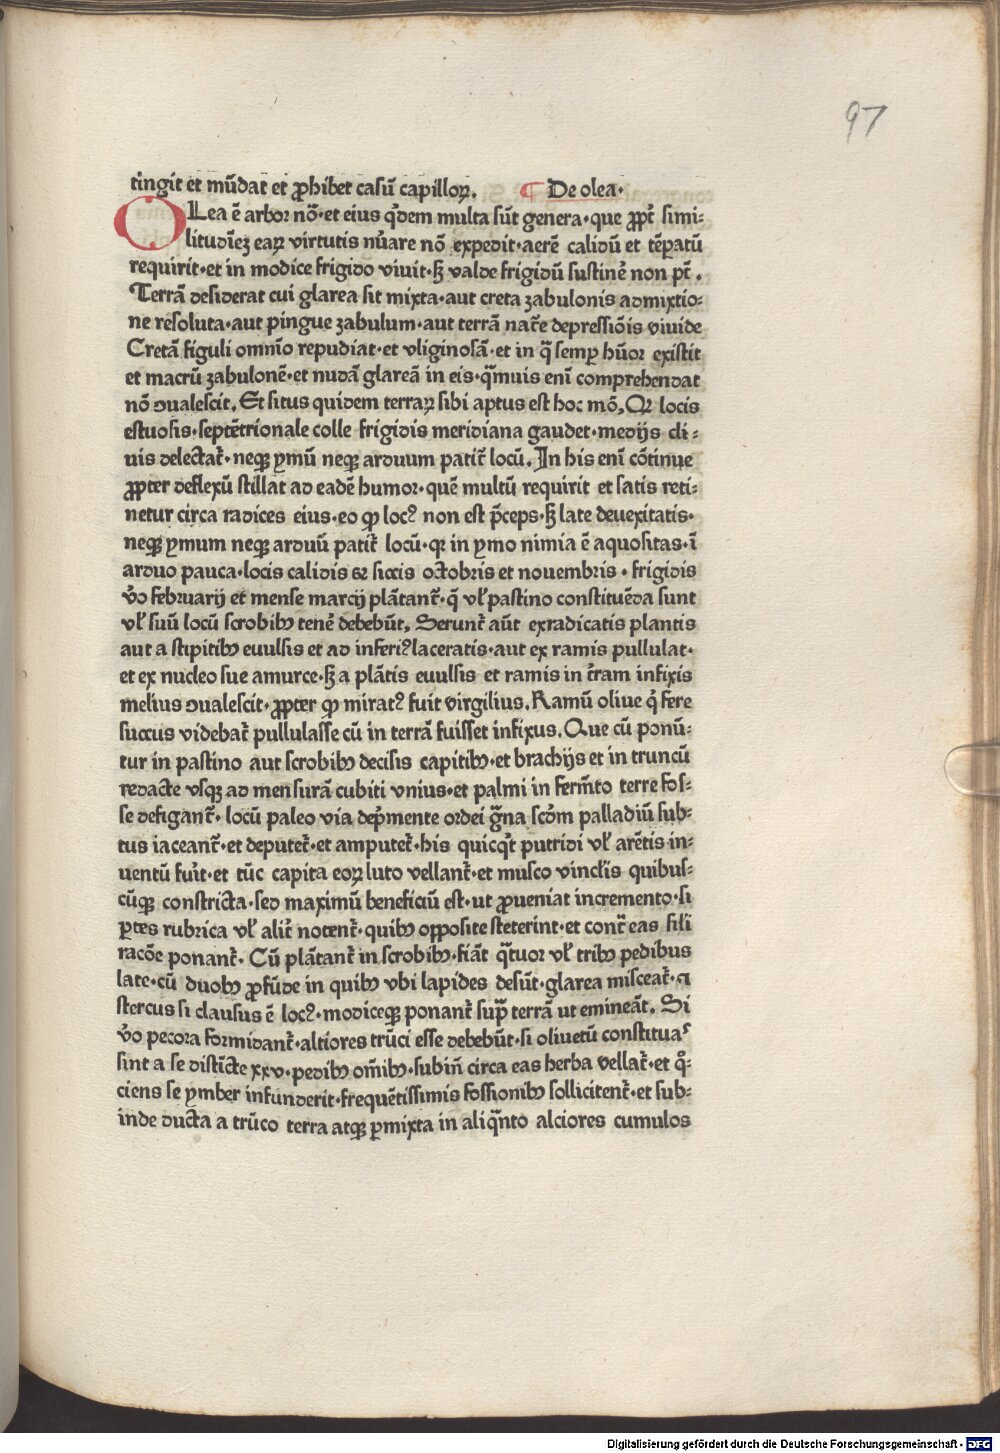 97
tingit et mūdat et ꝓhibet casū capilloꝝ. ¶ De olea.
OLea ē arbor nō·et eius q̄dem multa sūt genera·que ꝓpt̄ simi⸗
litudīeꝫ eaꝝ virtutis nūare nō expedit·aerē calidū et tēꝑatū
requirit·et in modice frigido viuit·sꝫ valde frigidū sustinē non pt̄.
Terrā desiderat cui glarea sit mixta·aut creta zabulonis admixtio⸗
ne resoluta·aut pingue zabulum·aut terrā nat̄e depressiōis viuide
Cretā figuli omnīo repudiat·et vliginosā·et in q̄ semꝑ hūor existit
et macrū zabulonē·et nudā glareā in eis·q̄muis enī comprehendat
nō ꝯualescit. Et situs quidem terraꝝ sibi aptus est hoc mō. Qꝛ locis
estuosis·septētrionale colle frigidis meridiana gaudet·medijs cli⸗
uis delectat̄·neqꝫ ymū neqꝫ arduum patit̄ locū. In his enī cōtinue
ꝓpter deflexū stillat ad eadē humor·quē multū requirit et satis reti⸗
netur circa radices eius·eo ꝙ locꝰ non est p̄ceps·sꝫ late deuexitatis·
neqꝫ ymum neqꝫ arduū patit̄ locū·qꝛ in ymo nimia ē aquositas·ī
arduo pauca·locis calidis & siccis octobris et nouembris·frigidis
v̄o februarij et mense marcij plātant̄·q̄ vl̄ pastino constituēda sunt
vl̄ suū locū scrobibꝫ tenē debebūt. Serunt̄ aūt exradicatis plantis
aut a stipitibꝫ euulsis et ad inferiꝰ laceratis·aut ex ramis pullulat·
et ex nucleo sue amurce·sꝫ a plātis euulsis et ramis in t̄ram infixis
melius ꝯualescit·ꝓpter ꝙ miratꝰ fuit virgilius. Ramū oliue q̄ fere
succus videbat̄ pullulasse cū in terrā fuisset infixus. Que cū ponū⸗
tur in pastino aut scrobibꝫ decisis capitibꝫ·et brachijs et in truncū
redacte vsqꝫ ad mensurā cubiti vnius·et palmi in ferm̄to terre fos⸗
se defigant̄· locū paleo via dep̄mente ordei ḡna scd̄m palladiū sub⸗
tus iaceant̄·et deputet̄·et amputet̄·his quicq̄t putridi vl̄ arētis in⸗
uentū fūit·et tūc capita eoꝝ luto vellant̄·et musco vinclis quibus⸗
cūqꝫ constricta·sed maximū beneficiū est·ut ꝓueniat incremento·si
ꝑtes rubrica vl̄ alit̄ notent̄·quibꝫ opposite steterint·et cont̄ eas sil̄i
racōe ponant̄. Cū plātant̄ in scrobibꝫ·fiāt q̄tuor vl̄ tribꝫ pedibus
late·cū duobꝫ ꝓfūde in quibꝫ vbi lapides desūt·glarea misceat̄·⁊
stercus si clausus ē locꝰ·modiceqꝫ ponant̄ sup̄ terrā ut emineāt. Si
v̄o pecora formidant̄·altiores trūci esse debebūt·si oliuetū constituaˢ
sint a se distīcte xxv·pedibꝫ om̄ibꝫ·subin̄ circa eas herba vellat̄·et q̊⸗
ciens se ymber infunderit·frequētissimis fossionibꝫ sollicitent̄·et sub⸗
inde ducta a trūco terra atqꝫ ꝑmixta in aliq̄nto alciores cumulos
Digitalisierung gefördert durch die Deutsche Forschungsgemeinschaft - DFG